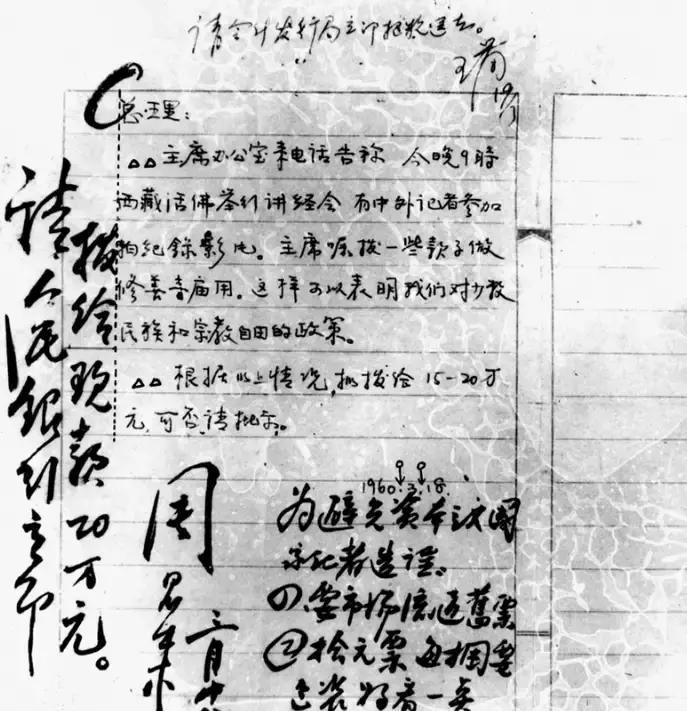 请会计发行局立即拨款送去。
总理：
△△主席办公室来电话告称 今晚9時
西藏活佛举行讲经会 有中外记者参加
拍纪録影片。主席嘱拨一些款子做
修善寺庙用。这样可以表明我们对少数
民族和宗教自由的政策。
△△根据以上情况,拟拨给15-20万
元,可否,请批示。
1960.3.18.
请人民银行立即
拨给现款20万元。
周恩来
三月十八
为避免资本主义国
家记者造谣：
①要市场流通舊票
②拾元票每捆要
包装好看一点